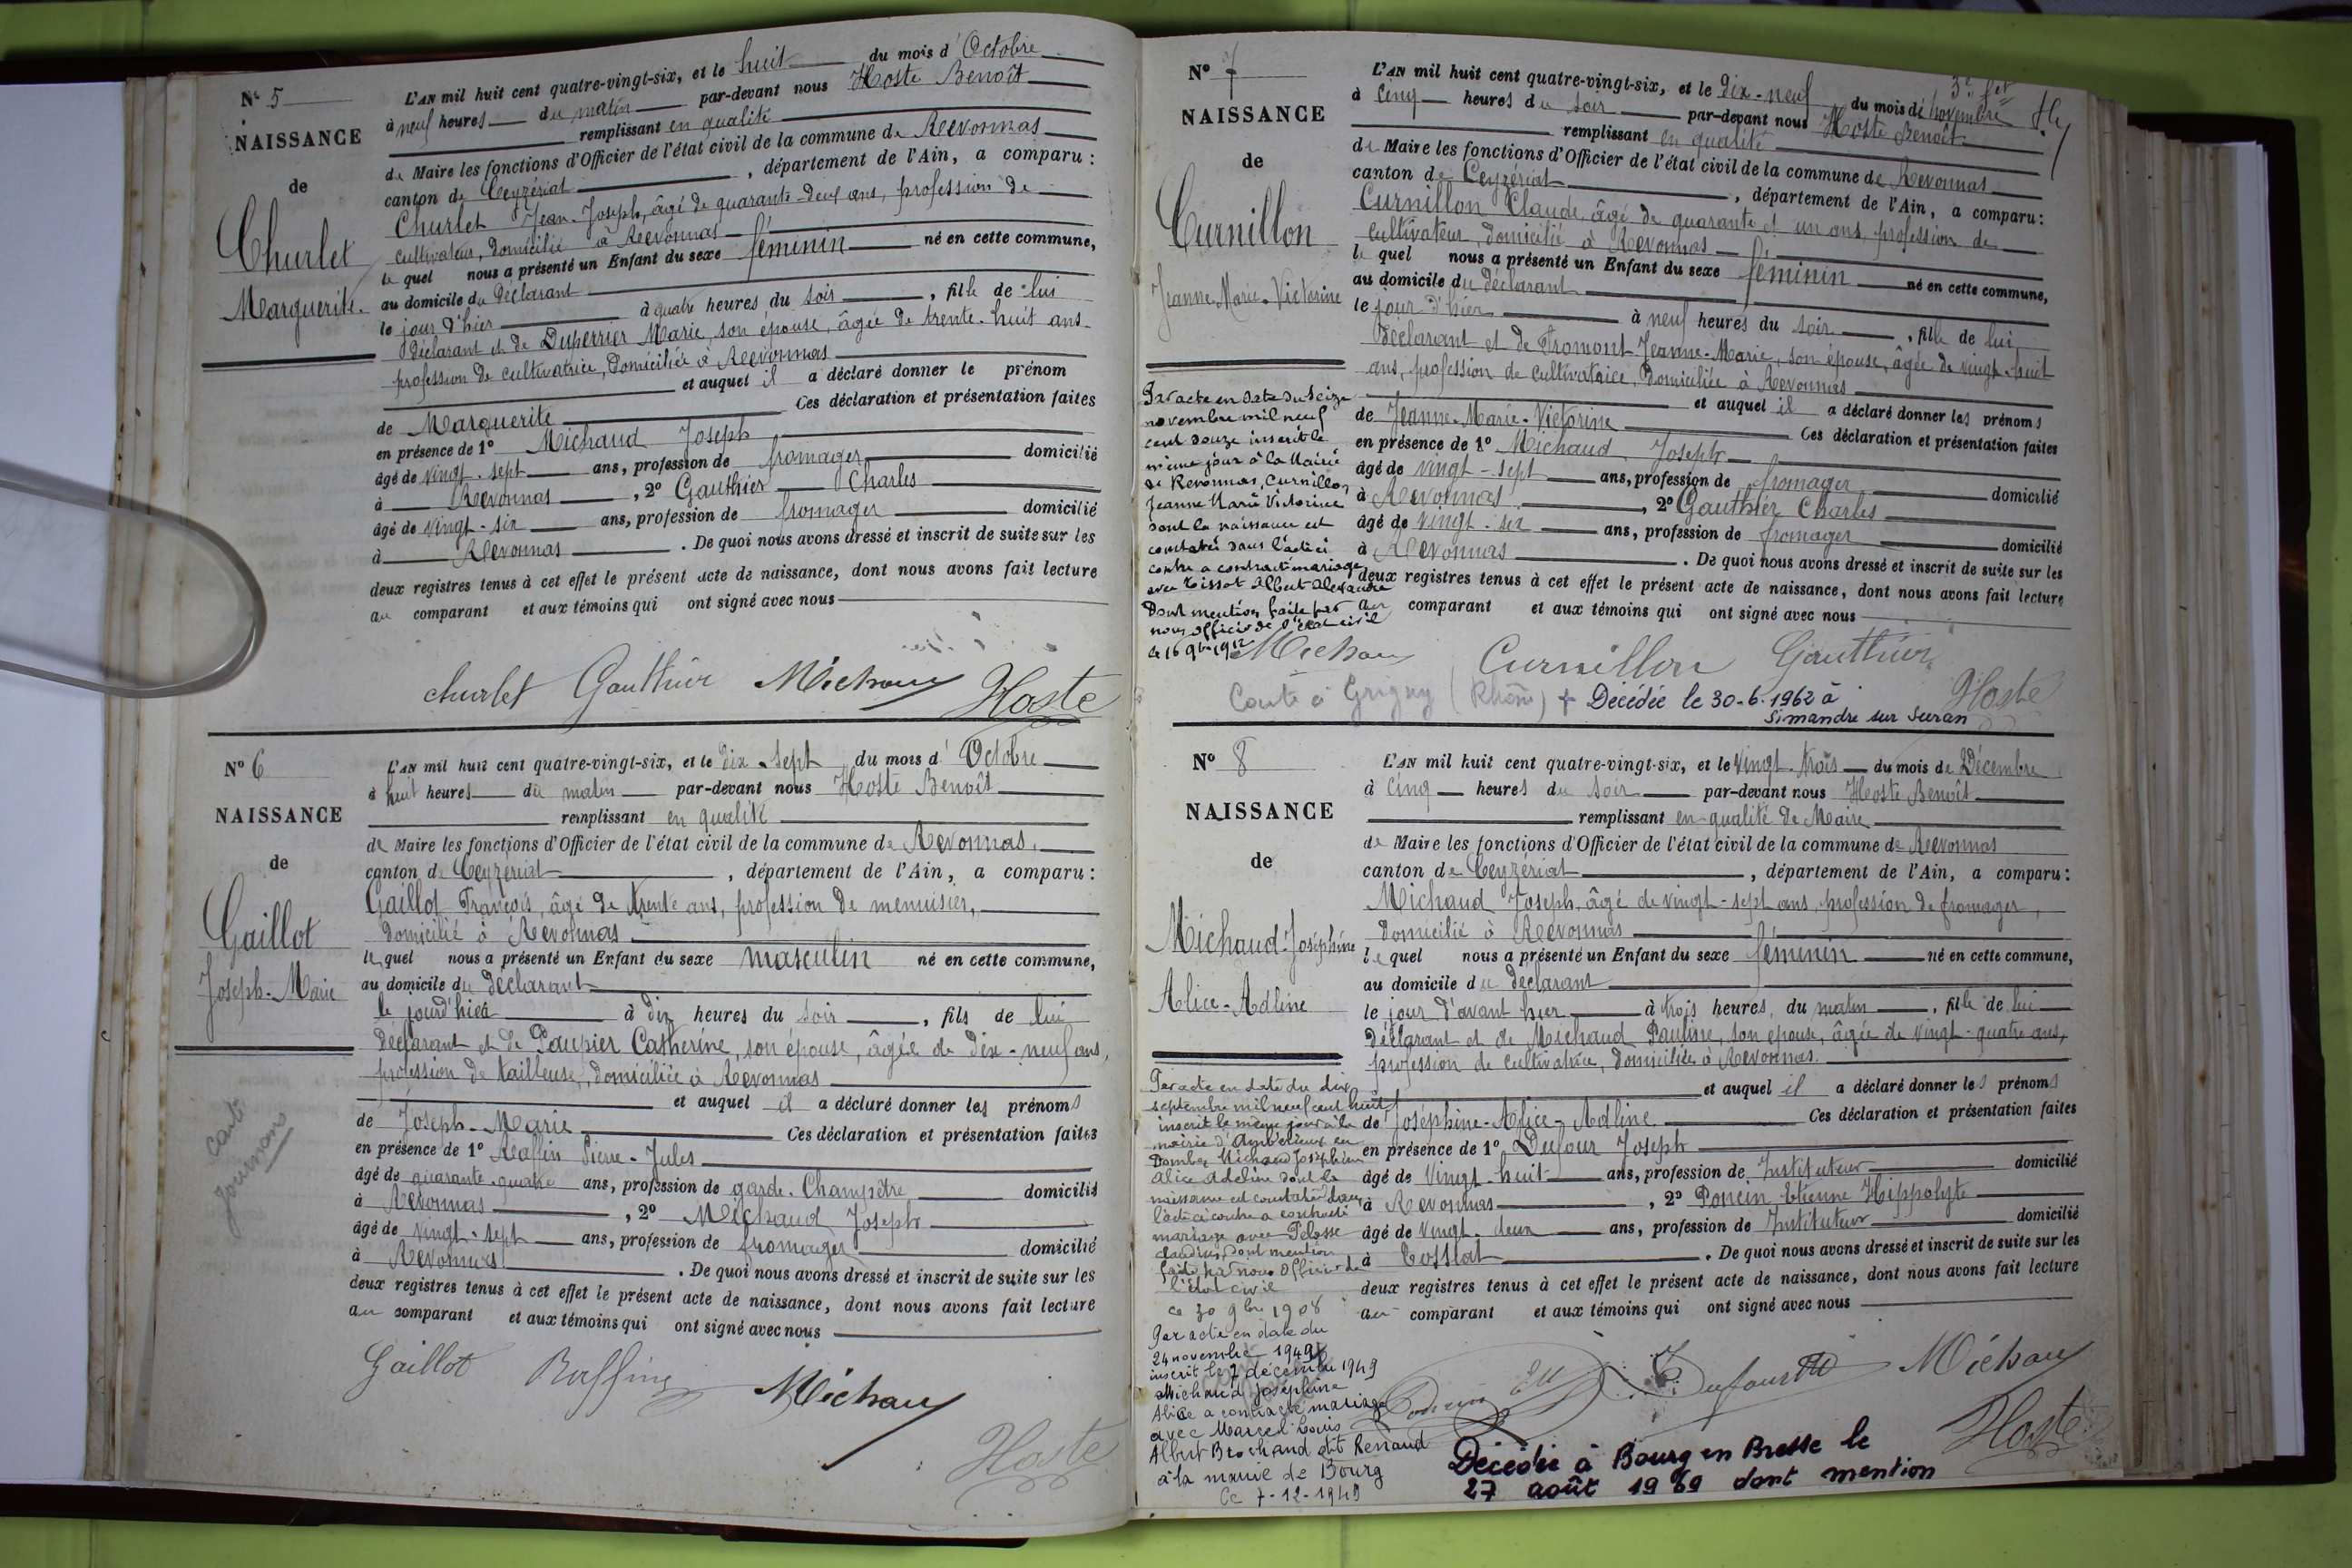 N° 5
NAISSANCE
de
Churlet
Marguerite.
L'AN mil huit cent quatre-vingt-six, et le huit du mois d'Octobre
à neuf heures du matin par-devant nous Hoste Benoît
remplissant en qualité
de Maire les fonctions d'Officier de l'état civil de la commune de Revonnas
canton de Ceyzériat, département de l'Ain, a comparu :
Churlet Jean-Joseph, âgé de quarante-deux ans, profession de
cultivateur, domicilié à Revonnas
lequel nous a présenté un Enfant du sexe féminin né en cette commune,
au domicile du déclarant
le jour d'hier à quatre heures du soir, fille de lui
déclarant et de Duperrier Marie, son épouse, âgée de trente-huit ans
profession de cultivatrice, domiciliée à Revonnas
et auquel il a déclaré donner le prénom
de Marguerite Ces déclaration et présentation faites
en présence de 1° Michaud Joseph
âgé de vingt-sept ans, profession de fromager domicilié
à Revonnas, 2° Gauthier Charles
âgé de vingt-six ans, profession de fromager domicilié
à Revonnas. De quoi nous avons dressé et inscrit de suite sur les
deux registres tenus à cet effet le présent acte de naissance, dont nous avons fait lecture
au comparant et aux témoins qui ont signé avec nous
churlet Gauthier Michaud Hoste
N° 6
NAISSANCE
de
Gaillot
Joseph-Marie
carte
Journans
L'AN mil huit cent quatre-vingt-six, et le dix-sept du mois d'Octobre
à huit heures du matin par-devant nous Hoste Benoît
remplissant en qualité
de Maire les fonctions d'Officier de l'état civil de la commune de Revonnas,
canton de Ceyzériat, département de l'Ain, a comparu :
Gaillot François, âgé de trente ans, profession de menuisier,
domicilié à Revonnas
lequel nous a présenté un Enfant du sexe masculin né en cette commune,
au domicile du déclarant
le jour d'hier à dix heures du soir, fils de lui
déclarant et de Paupier Catherine, son épouse, âgée de dix-neuf ans,
profession de tailleuse, domiciliée à Revonnas
et auquel il a déclaré donner les prénoms
de Joseph-Marie Ces déclaration et présentation faites
en présence de 1° Raffin Pierre-Jules
âgé de quarante-quatre ans, profession de garde-Champêtre domicilié
à Revonnas, 2° Michaud Joseph
âgé de vingt-sept ans, profession de fromager domicilié
à Revonnas. De quoi nous avons dressé et inscrit de suite sur les
deux registres tenus à cet effet le présent acte de naissance, dont nous avons fait lecture
au comparant et aux témoins qui ont signé avec nous
Gaillot Raffin Michaud
Hoste
N° 7
NAISSANCE
de
Curnillon
Jeanne-Marie-Victorine
Par acte en date du seize
novembre mil neuf
cent douze inscrit le
même jour à la Mairie
de Revonnas, Curnillon
Jeanne Marie Victorine
dont la naissance est
constatée dans l'acte ci
contre a contracté mariage
avec Tissot Albert Alexandre
Dont mention faite par
nous officier de l'état civil
le 16 9bre 1912
L'AN mil huit cent quatre-vingt-six, et le Dix-neuf du mois de novembre
à Cinq heures du soir par-devant nous Hoste Benoît
remplissant en qualité
de Maire les fonctions d'Officier de l'état civil de la commune de Revonnas
canton de Ceyzériat, département de l'Ain, a comparu :
Curnillon Claude, âgé de quarante et un ans, profession de
cultivateur, domicilié à Revonnas
lequel nous a présenté un Enfant du sexe féminin né en cette commune,
au domicile du déclarant
le jour d'hier à neuf heures du soir, fille de lui
déclarant et de Fromont Jeanne-Marie, son épouse, âgée de vingt-huit
ans, profession de cultivatrice, domiciliée à Revonnas
et auquel il a déclaré donner les prénoms
de Jeanne-Marie-Victorine Ces déclaration et présentation faites
en présence de 1° Michaud Joseph
âgé de vingt-sept ans, profession de fromager domicilié
à Revonnas, 2° Gauthier Charles
âgé de vingt-six ans, profession de fromager domicilié
à Revonnas. De quoi nous avons dressé et inscrit de suite sur les
deux registres tenus à cet effet le présent acte de naissance, dont nous avons fait lecture
au comparant et aux témoins qui ont signé avec nous
Michaud Curnillon Gauthier
Hoste
Carte à Grigny (Rhône) + Décédée le 30-6-1962 à
Simandre sur Suran
N° 8
NAISSANCE
de
Michaud Joséphine
Alice-Adline
Par acte en date du dix
septembre mil neuf cent huit
inscrit le même jour à la
mairie d'Ambérieux en
Dombes Michaud Joséphine
Alice Adeline dont la
naissance est constatée dans
l'acte ci contre a contracté
mariage avec Pelosse
Claudius, dont mention
faite par nous Officier de
l'état civil
ce 30 9bre 1908
Par acte en date du
24 novembre 1949
inscrit le 7 décembre 1949
Michaud Joséphine
Alice a contracté mariage
avec Marcel Louis
Albert Brochand dit Renaud
à la mairie de Bourg
Ce 7-12-1949
L'AN mil huit cent quatre-vingt-six, et le Vingt-trois du mois de Décembre
à Cinq heures du soir par-devant nous Hoste Benoît
remplissant en qualité de Maire
de Maire les fonctions d'Officier de l'état civil de la commune de Revonnas
canton de Ceyzériat, département de l'Ain, a comparu :
Michaud Joseph, âgé de vingt-sept ans, profession de fromager,
domicilié à Revonnas
lequel nous a présenté un Enfant du sexe féminin né en cette commune,
au domicile du déclarant
le jour d'avant hier à trois heures du matin, fille de lui
déclarant et de Michaud Pauline, son épouse, âgée de vingt-quatre ans,
profession de cultivatrice, domiciliée à Revonnas.
et auquel il a déclaré donner les prénoms
de Joséphine-Alice-Adline Ces déclaration et présentation faites
en présence de 1° Dufour Joseph
âgé de Vingt-huit ans, profession de Instituteur domicilié
à Revonnas, 2° Poncin Etienne Hippolyte
âgé de Vingt-deux ans, profession de Instituteur domicilié
à Tossiat. De quoi nous avons dressé et inscrit de suite sur les
deux registres tenus à cet effet le présent acte de naissance, dont nous avons fait lecture
au comparant et aux témoins qui ont signé avec nous
Poncin Dufour Michaud
Hoste
Décédée à Bourg en Bresse le
27 août 1969 dont mention